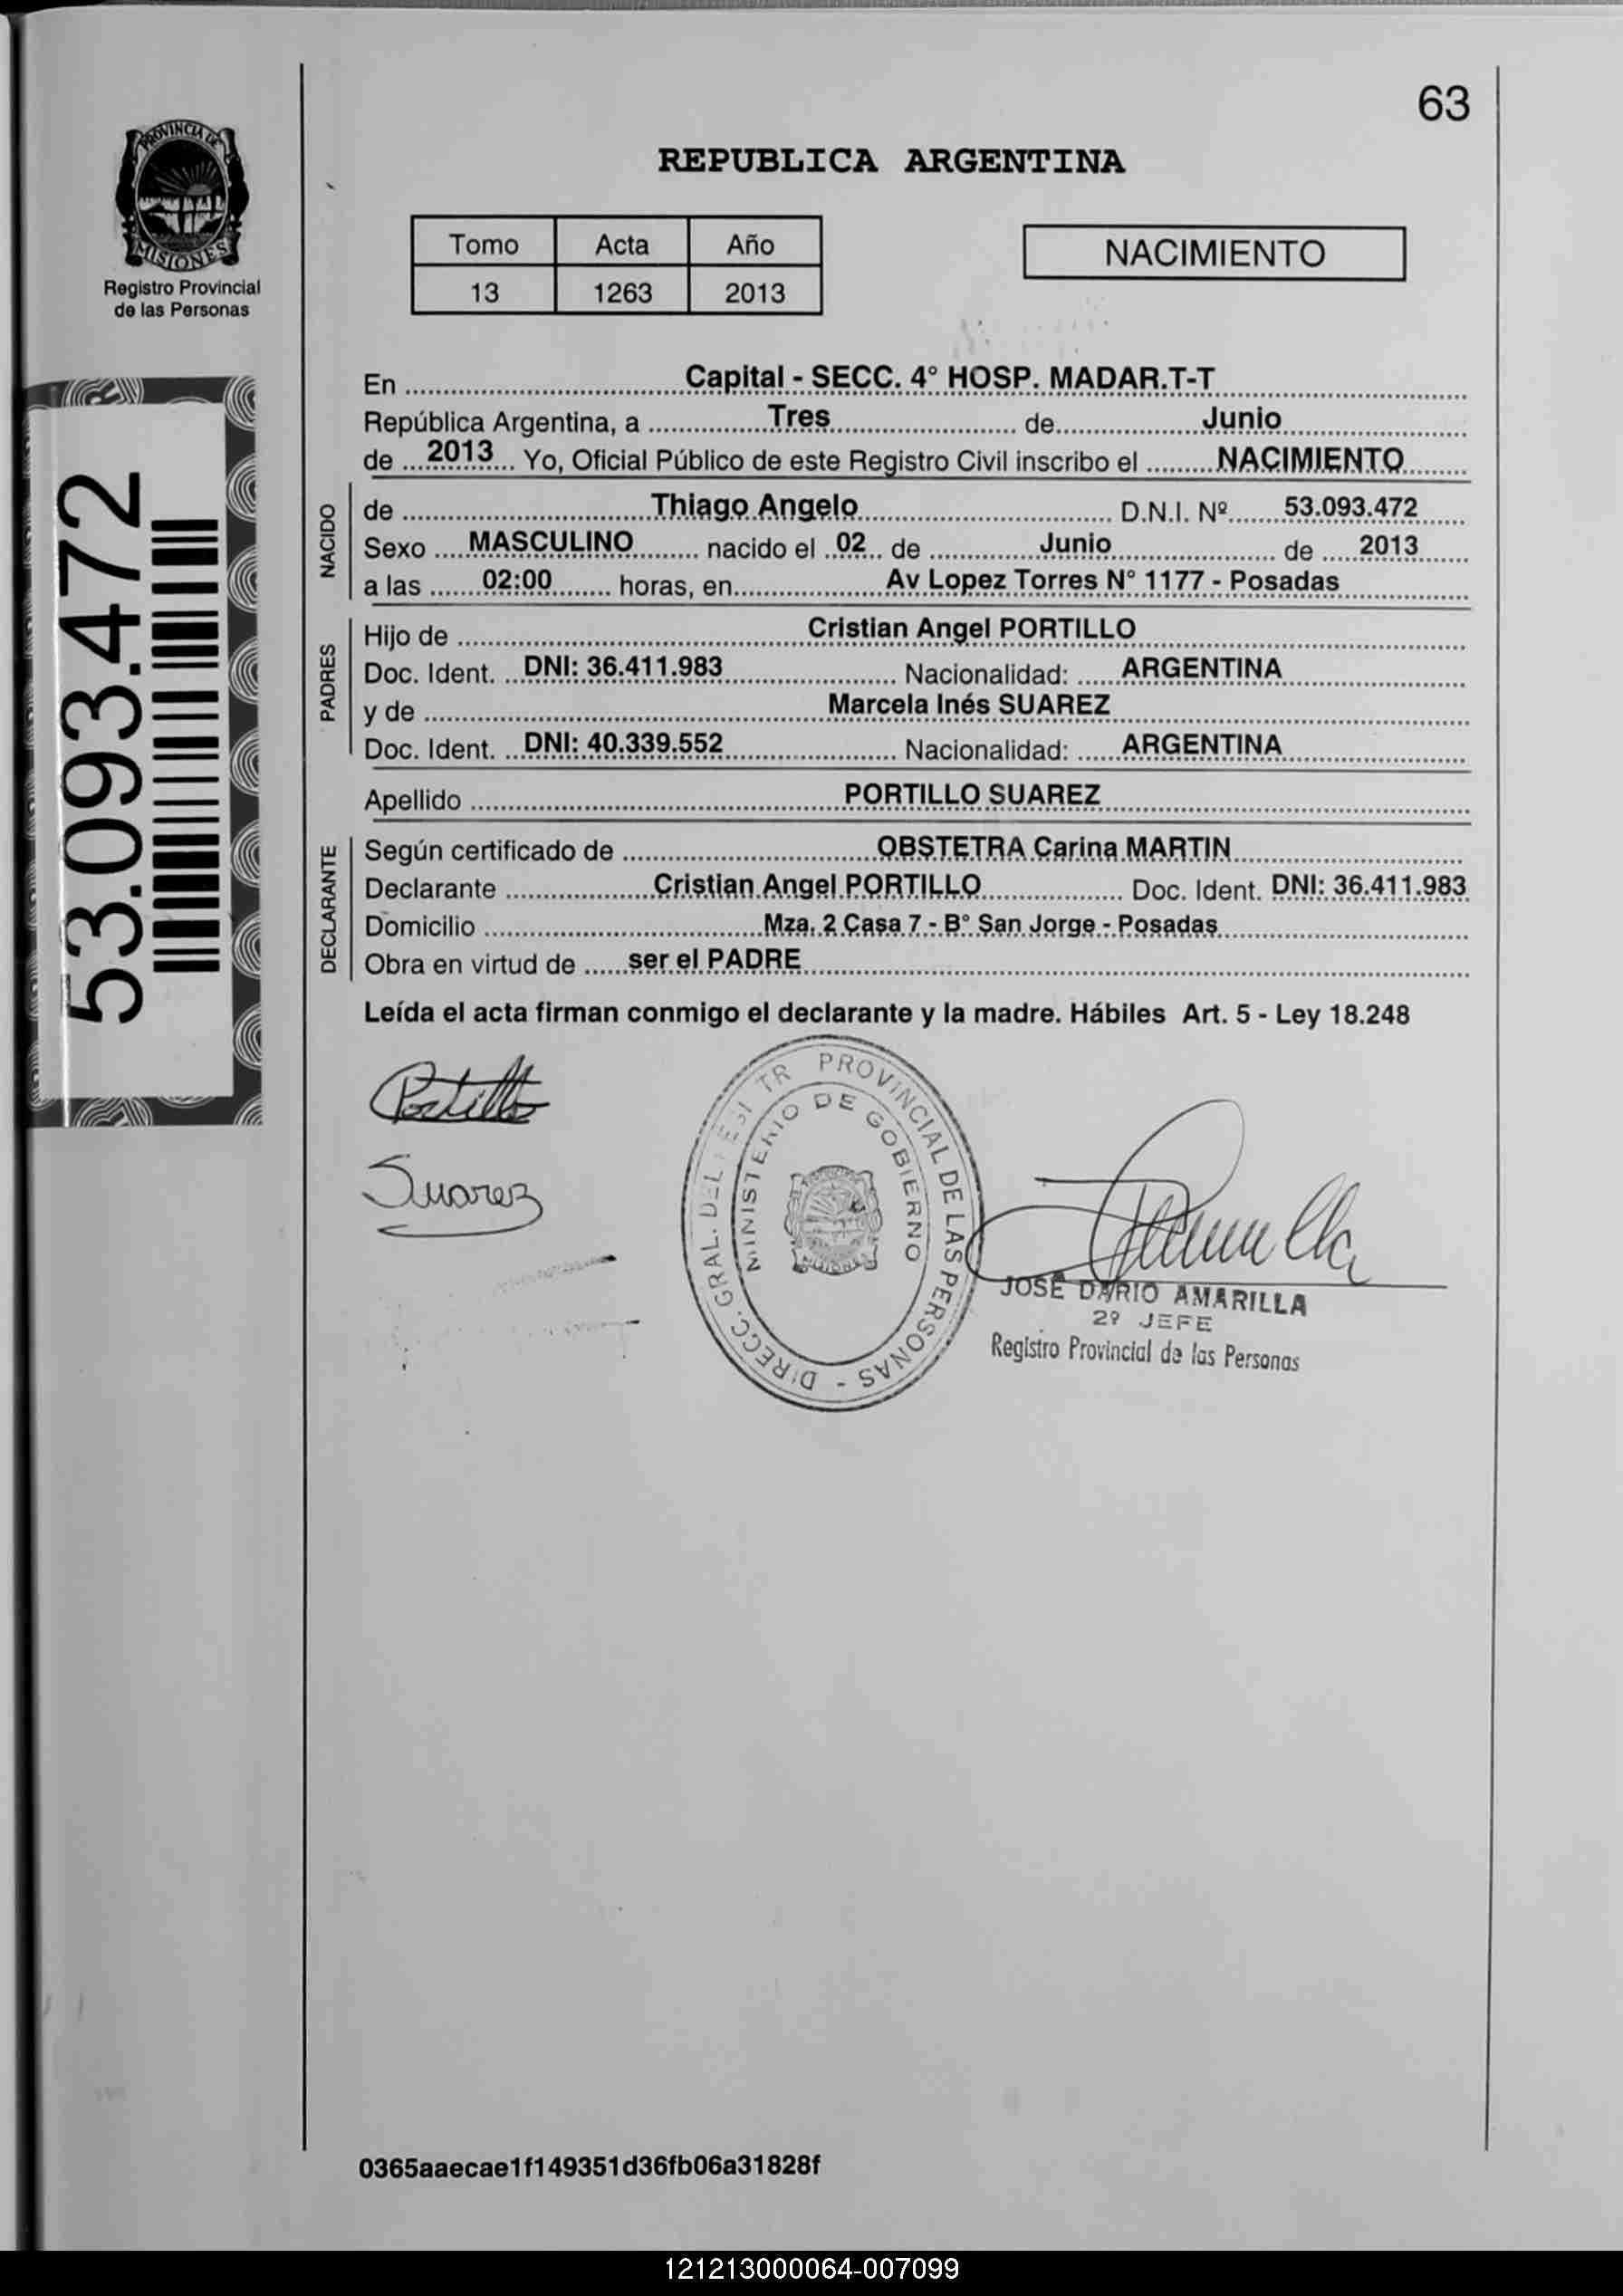 63
PROVINCIA DE
MISIONES
Registro Provincial
de las Personas
REPUBLICA ARGENTINA
Tomo Acta Año
13 1263 2013
NACIMIENTO
53.093.472
En Capital - SECC. 4° HOSP. MADAR.T-T
República Argentina, a Tres de Junio
de 2013 Yo, Oficial Público de este Registro Civil inscribo el NACIMIENTO
NACIDO
de Thiago Angelo D.N.I. Nº 53.093.472
Sexo MASCULINO nacido el 02 de Junio de 2013
a las 02:00 horas, en Av Lopez Torres N° 1177 - Posadas
PADRES
Hijo de Cristian Angel PORTILLO
Doc. Ident. DNI: 36.411.983 Nacionalidad: ARGENTINA
y de Marcela Inés SUAREZ
Doc. Ident. DNI: 40.339.552 Nacionalidad: ARGENTINA
Apellido PORTILLO SUAREZ
DECLARANTE
Según certificado de OBSTETRA Carina MARTIN
Declarante Cristian Angel PORTILLO Doc. Ident. DNI: 36.411.983
Domicilio Mza. 2 Casa 7 - B° San Jorge - Posadas
Obra en virtud de ser el PADRE
Leída el acta firman conmigo el declarante y la madre. Hábiles Art. 5 - Ley 18.248
Portillo
Suarez
DIRECC. GRAL. DEL PROVINCIAL DE LAS PERSONAS -
MINISTERIO DE GOBIERNO
JOSÉ DARIO AMARILLA
2º JEFE
Registro Provincial de las Personas
0365aaecae1f149351d36fb06a31828f
121213000064-007099